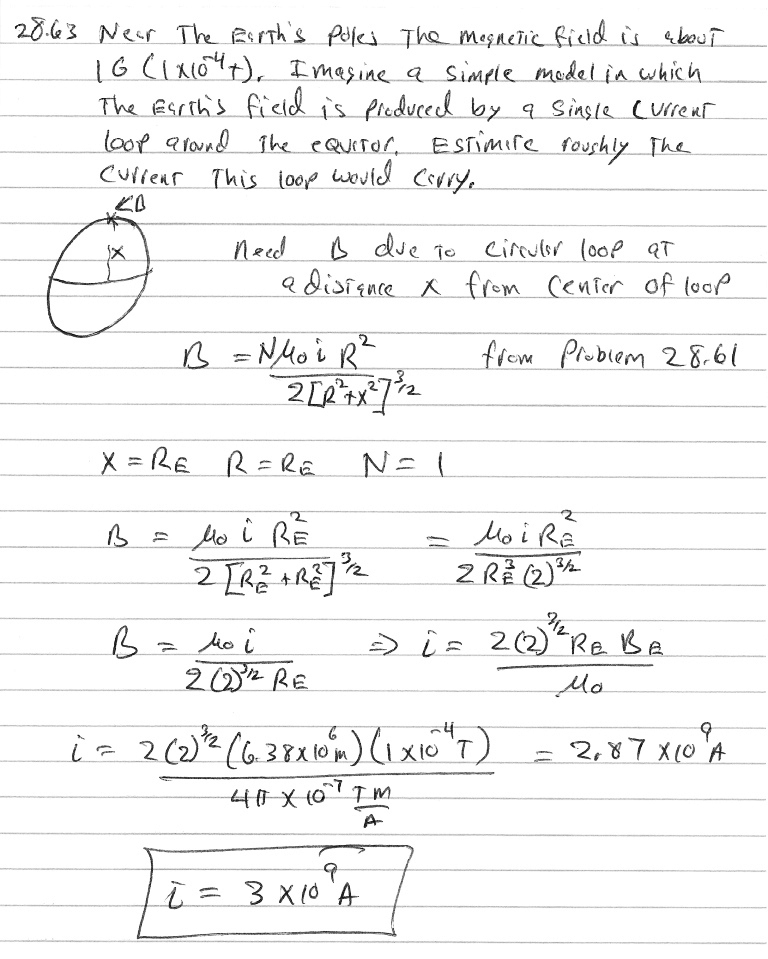 28.63 Near The Earth's Poles The magnetic field is about
1 G (1x10^-4 T). Imagine a simple model in which
The Earth's field is produced by a single current
loop around the equator. Estimate roughly The
current This loop would carry.
B
x
Need B due to circular loop at
a distance x from center of loop
B = Nμ₀ i R² / 2[R²+x²]^3/2 from Problem 28.61
X = R_E R = R_E N = 1
B = μ₀ i R_E² / 2[R_E² + R_E²]^3/2 = μ₀ i R_E² / 2 R_E³ (2)^3/2
B = μ₀ i / 2(2)^3/2 R_E ⇒ i = 2(2)^3/2 R_E B_E / μ₀
i = 2(2)^3/2 (6.38x10^6 m)(1x10^-4 T) / 4π x 10^-7 T M/A = 2.87 x10^9 A
i = 3 x10^9 A